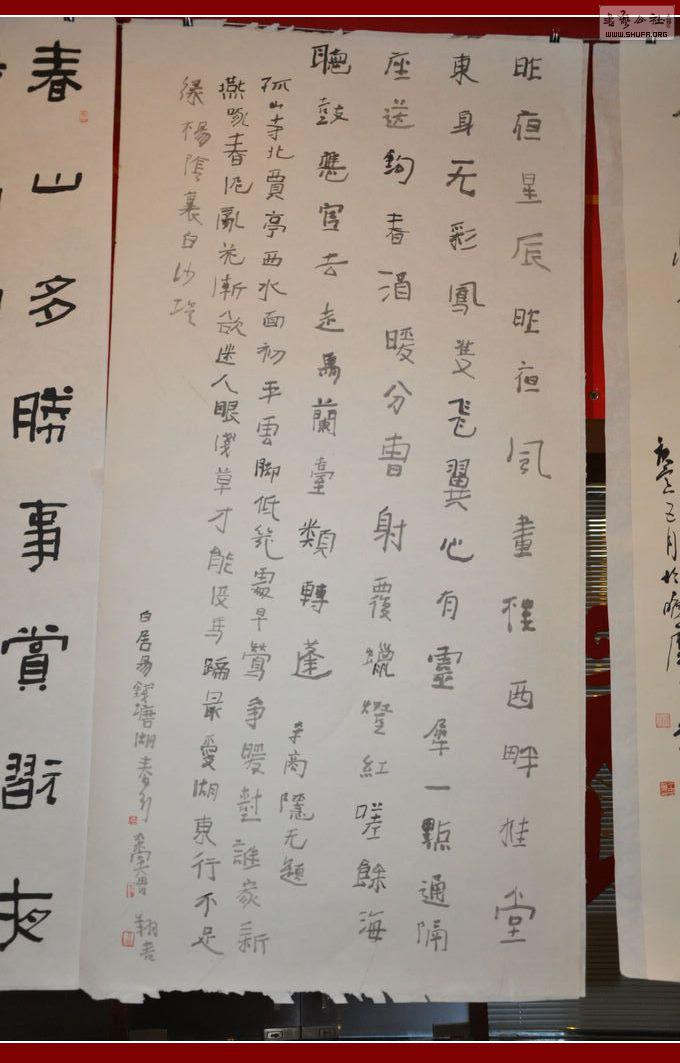 书法公社
WWW.SHUFA.ORG
五月於
昨夜星辰昨夜風畫樓西畔桂堂
東身无彩鳳雙飛翼心有靈犀一點通隔
座送鉤春酒暖分曹射覆蠟燈紅嗟餘海
聽鼓應官去走馬蘭臺類轉蓬 李商隱无題
孤山寺北賈亭西水面初平雲脚低幾處早鶯争暖樹誰家新
燕啄春泥亂花漸欲迷人眼淺草才能没馬蹄最愛湖東行不足
綠楊陰裏白沙堤
白居易錢塘湖春行 翔書
春山多勝事賞翫夜